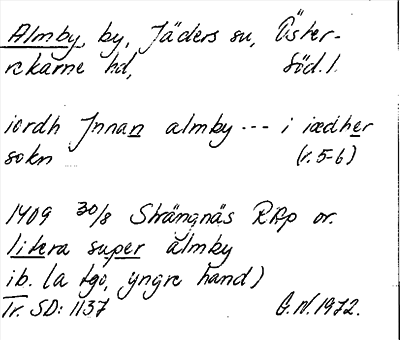 Almby, by, Jäders sn, Öster-
rekarne hd, Söd. l.
iordh Jnnan almby --- i iædher
sokn (r. 5-6)
1409 30/8 Strängnäs RAp or.
litera super almby
ib. (a tgo, yngre hand)
Tr. SD: 1137 G.W. 1972.